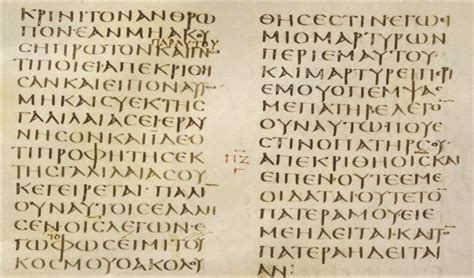 ΚΡΙΝΙΤΟΝΑΝΘΡΩ
ΠΟΝΕΑΝΜΗΑΚΟΥ
ΠΑΡΑΥΤΟΥ
ϹΗΠΡΩΤΟΝΚΑΙΓΝΩ
ΤΙΠΟΙΕΙΑΠΕΚΡΙΘΗ
ϹΑΝΚΑΙΕΙΠΟΝΑΥΤΩ
ΜΗΚΑΙϹΥΕΚΤΗϹ
ΓΑΛΙΛΑΙΑϹΕΙΕΡΑΥ
ΝΗϹΟΝΚΑΙΪΔΕΟ
ΤΙΠΡΟΦΗΤΗϹΕΚ
ΤΗϹΓΑΛΙΛΑΙΑϹΟΥ
ΚΕΓΕΙΡΕΤΑΙΠΑΛΙ
ΟΥΝΑΥΤΟΙϹΕΛΑΛΗ
ϹΕΝΟΙϹΛΕΓΩΝΕ
ΓΩΦΩϹΕΙΜΙΤΟΥ
ΚΟϹΜΟΥΟΑΚΟΛΟΥ
ΘΗϹΕϹΤΙΝΕΓΩΕΙ
ΜΙΟΜΑΡΤΥΡΩΝ
ΠΕΡΙΕΜΑΥΤΟΥ
ΚΑΙΜΑΡΤΥΡΕΙΠΕΡΙ
ΕΜΟΥΟΠΕΜΨΑϹ
ΜΕΠΑΤΗΡΕΛΕΓΟΝ
ΟΥΝΑΥΤΩΠΟΥΕ
ϹΤΙΝΟΠΑΤΗΡϹΟΥ
ΠΖ
ΑΠΕΚΡΙΘΗΟΙϹΚΑΙ
ΕΙΠΕΝΟΥΤΕΕΜΕ
ΟΙΔΑΤΑΙΟΥΤΕΤΟΝ
ΠΑΤΕΡΑΜΟΥΕΙΕ
ΜΕΗΔΕΙΤΑΙΚΑΙΤΟΝ
ΠΑΤΕΡΑΗΔΕΙΤΑΙ
ΑΝ